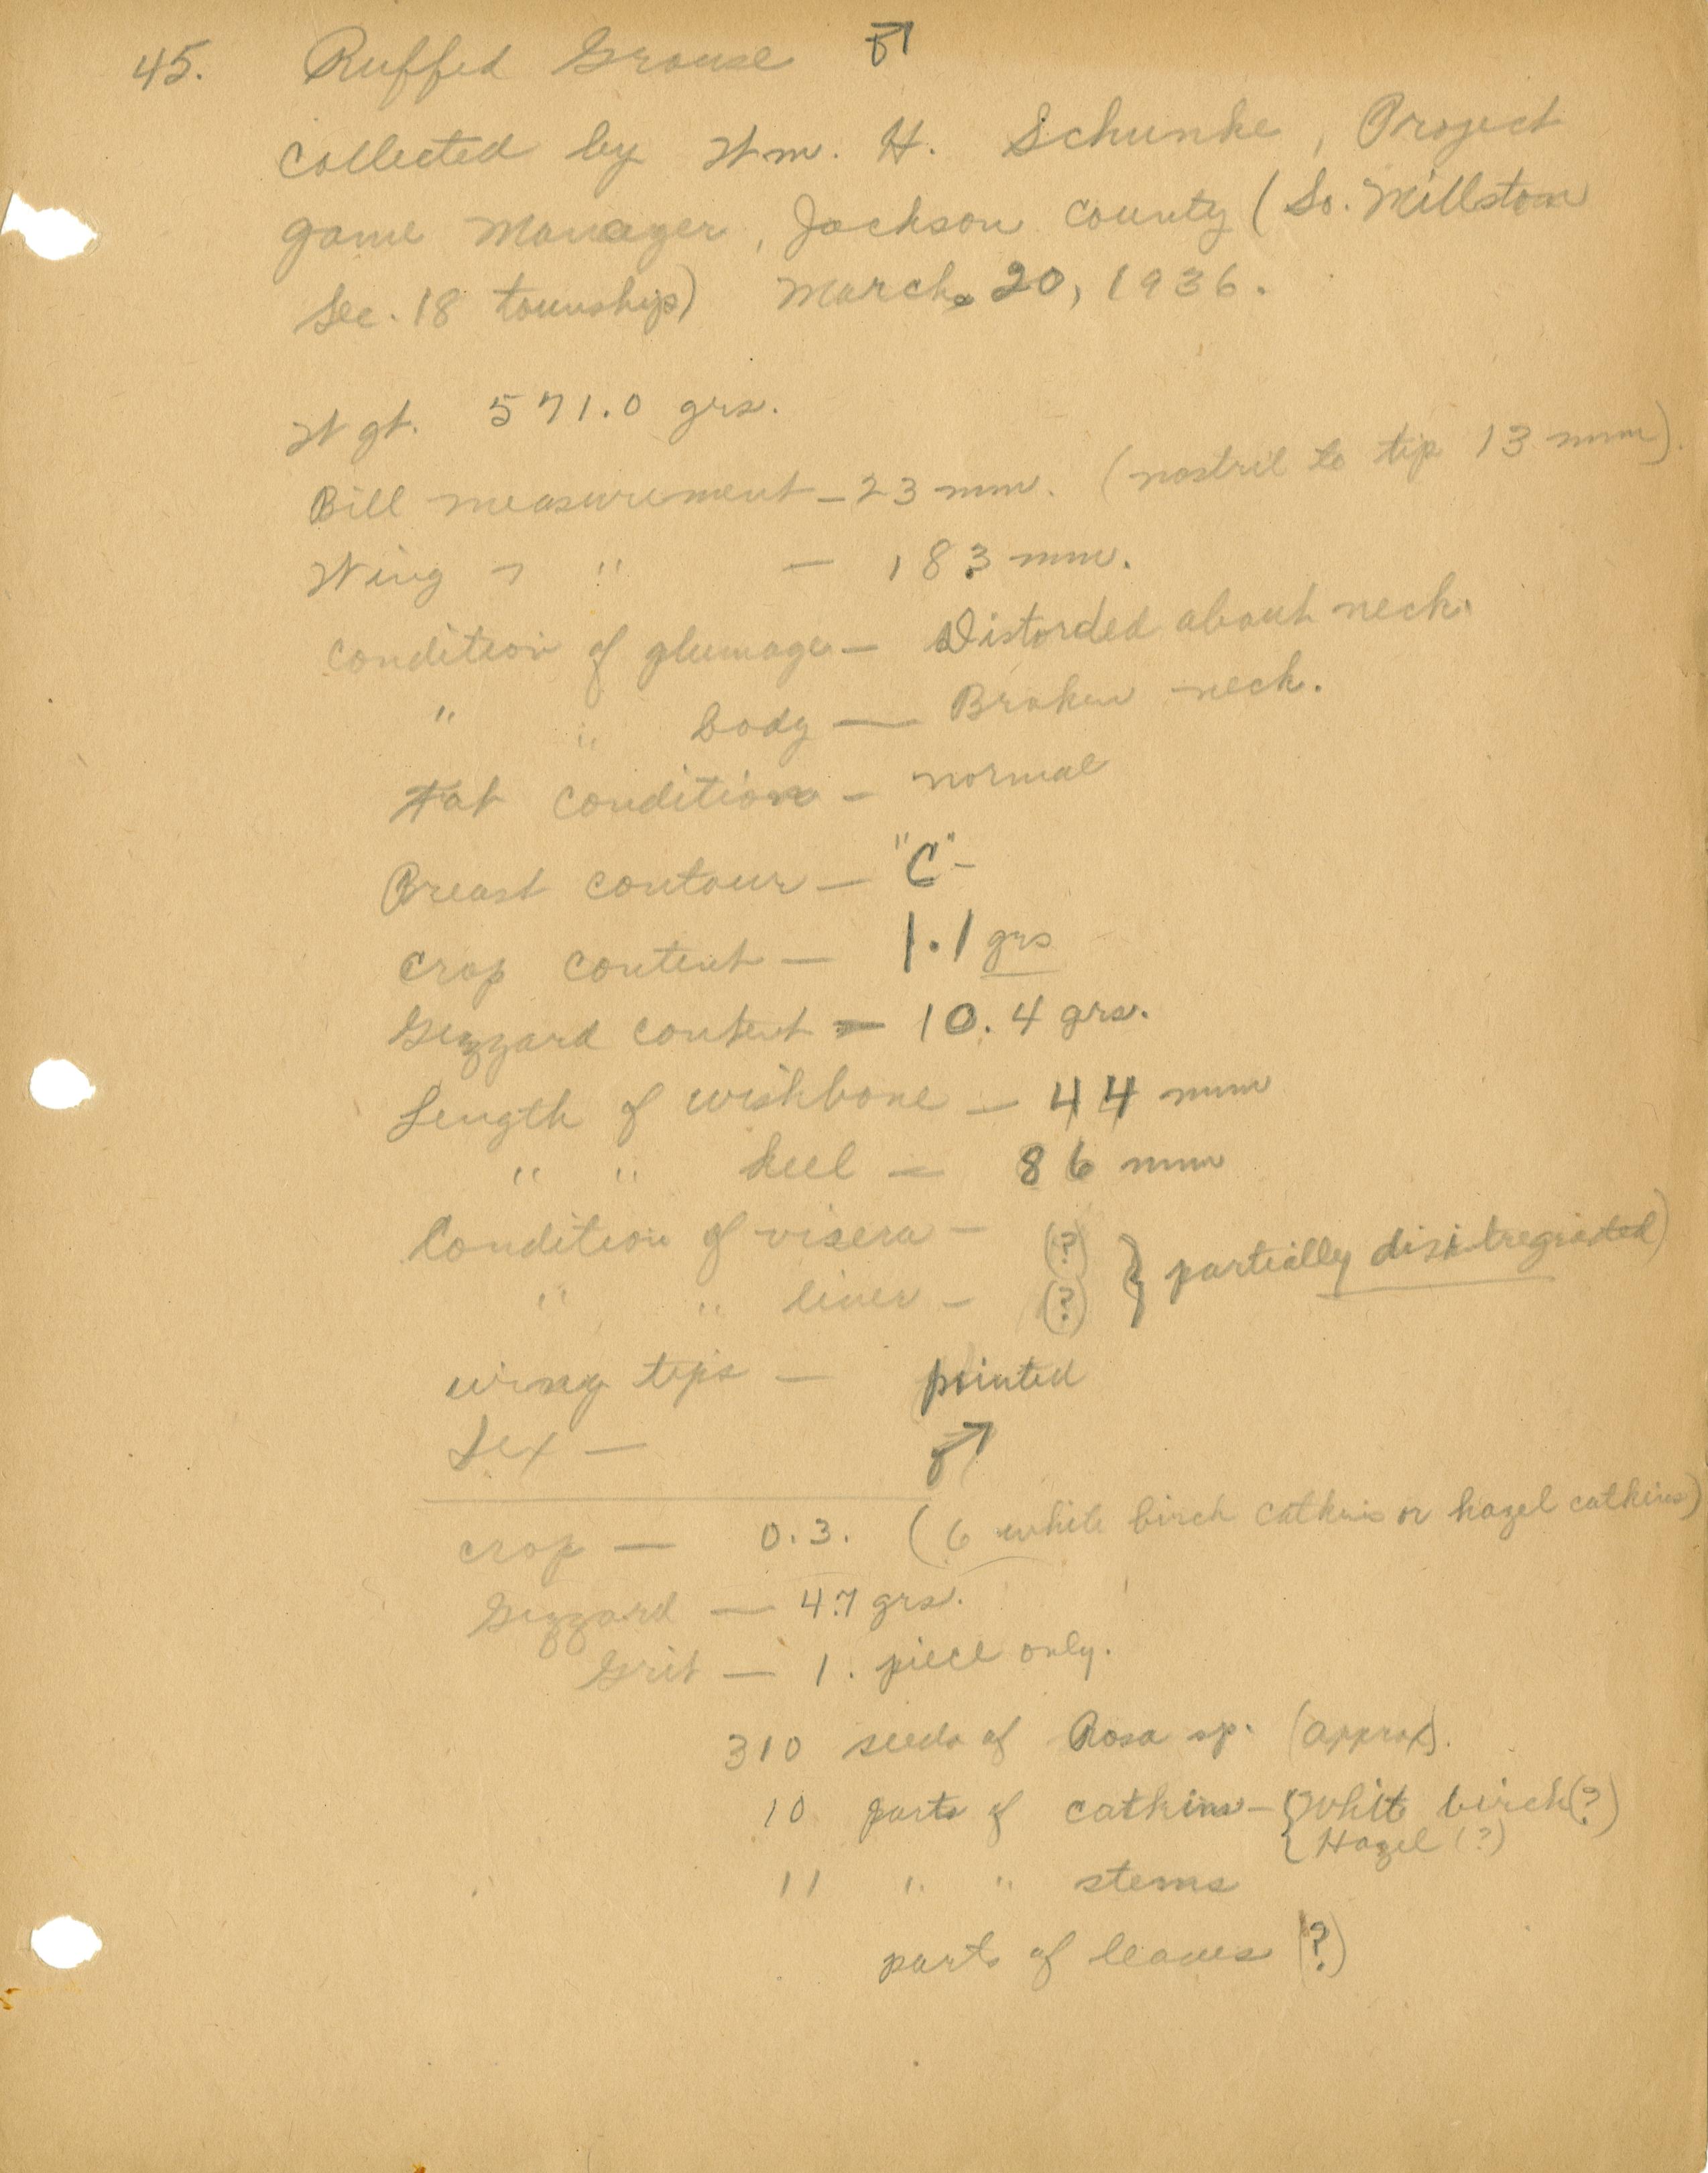 45. Ruffed Grouse ♂
Collected by Wm. H. Schunke, Project
game Manager, Jackson County (So. Millston
Sec. 18 township) March. 20, 1936.
Wgt. 571.0 grs.
Bill measurement - 23 mm. (nostril to tip 13 mm).
Wing " - 183 mm.
Condition of plumage - Distorded about neck.
" " body - Broken neck.
Fat condition - normal
Breast contour - "C" -
Crop content - 1.1 grs
Gizzard content - 10.4 grs.
Length of wishbone - 44 mm
" " keel - 86 mm
Condition of visera - (?) } partially disintregrated)
" " liver - (?)
wing tips - pointed
Sex - ♂
crop - 0.3. (6 white birch catkins or hazel catkins)
Gizzard - 4.7 grs.
Grit - 1. piece only.
310 seeds of Rosa sp. (approx).
10 parts of catkins - { Whit birch (?)
{ Hazel (?)
11 " " stems
parts of leaves (?)